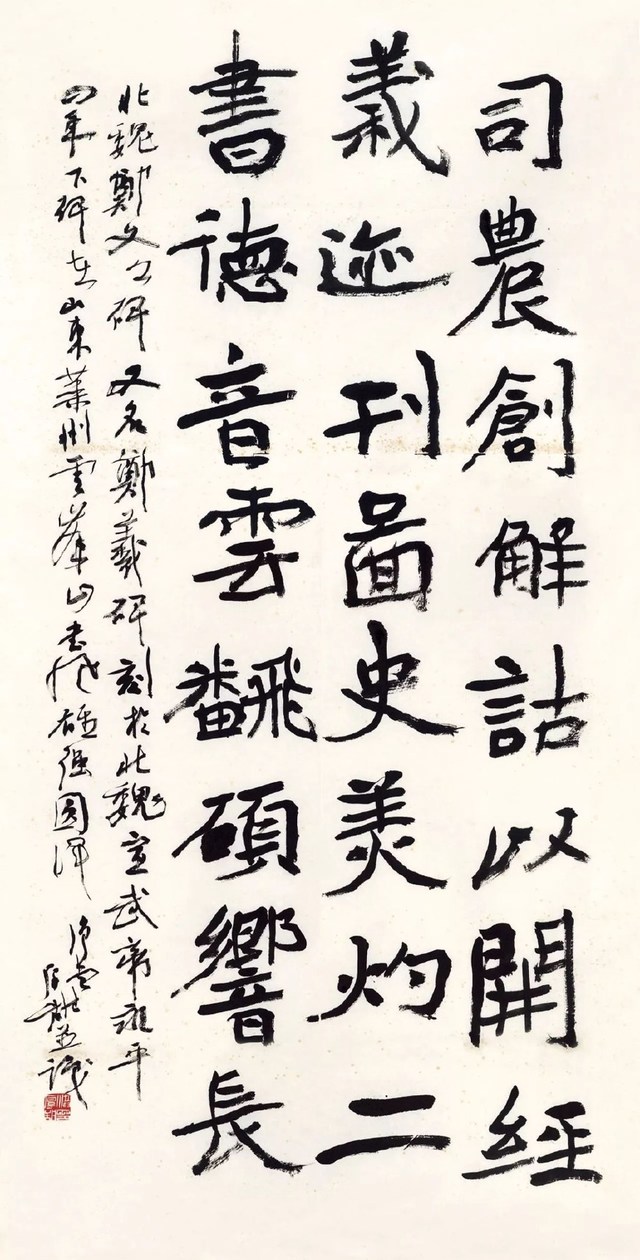 司農創解詁以開經
義迹刊圖史美灼二
書德音雲翻碩響長
北魏鄭文公碑又名鄭羲碑刻於北魏宣武帝永平
四年下碑在山東萊州雲峯山書代雄強圓渾